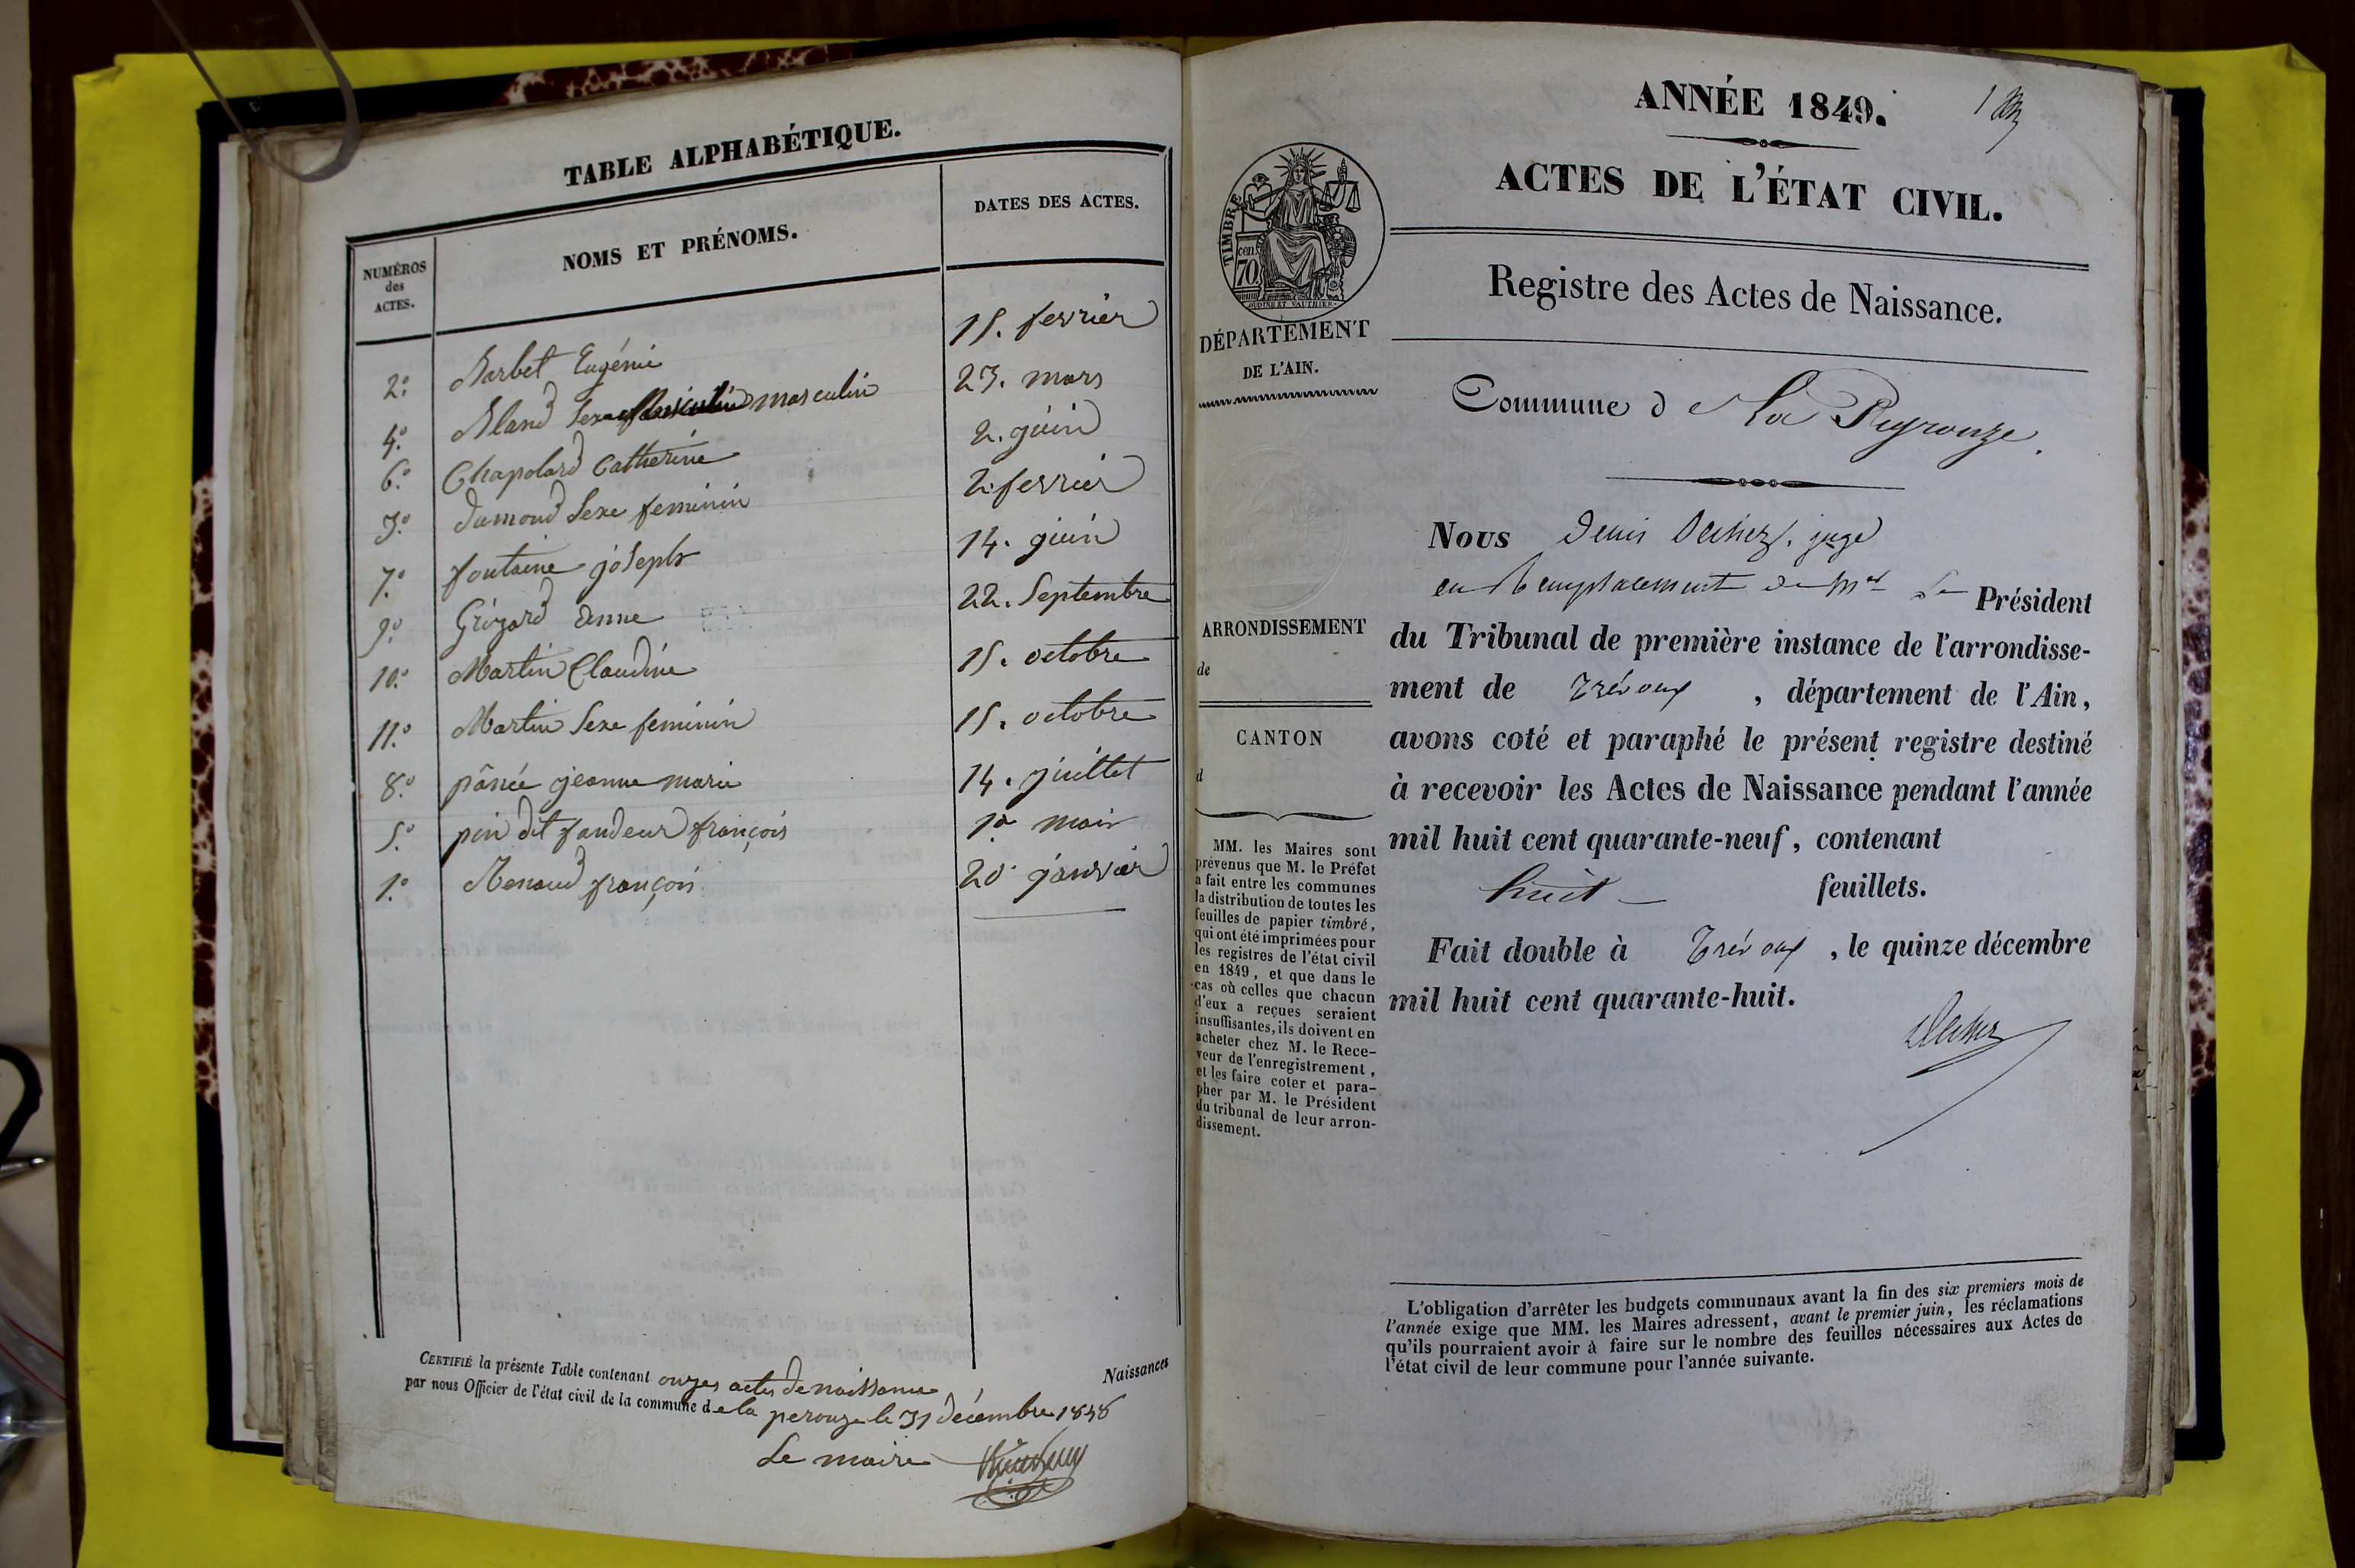 TABLE ALPHABÉTIQUE.
NUMÉROS
des
ACTES.
NOMS ET PRÉNOMS.
DATES DES ACTES.
2.° Barbet Eugénie 15. fevrier
4.° Bland Sexe masculin 23. mars
6.° Chapolard Catherine 2. juin
3.° dumond Sexe feminin 2. fevrier
7.° fontaine joseph 14. juin
9.° Grizard anne 22. Septembre
10.° Martin Claudine 15. octobre
11.° Martin Sexe feminin 15. octobre
8.° jeanne marie 14. juillet
5.° pin dit françois mai
1.° Renaud françois 20 janvier
CERTIFIÉ la présente Table contenant onzes actes de naissance Naissances
par nous Officier de l'état civil de la commune de la perouze le 31 décembre 1848
Le maire
ANNÉE 1849.
1
ACTES DE L'ÉTAT CIVIL.
TIMBRE
70 cen.
Registre des Actes de Naissance.
DÉPARTEMENT
DE L'AIN.
Commune de La Peyrouze.
Nous Denis juge
en Remplacement de Mr Le Président
du Tribunal de première instance de l'arrondisse-
ment de Trévoux, département de l'Ain,
avons coté et paraphé le présent registre destiné
à recevoir les Actes de Naissance pendant l'année
mil huit cent quarante-neuf, contenant
huit feuillets.
Fait double à Trévoux, le quinze décembre
mil huit cent quarante-huit.
ARRONDISSEMENT
de
CANTON
d
MM. les Maires sont
prévenus que M. le Préfet
a fait entre les communes
la distribution de toutes les
feuilles de papier timbré,
qui ont été imprimées pour
les registres de l'état civil
en 1849, et que dans le
cas où celles que chacun
d'eux a reçues seraient
insuffisantes, ils doivent en
acheter chez M. le Rece-
veur de l'enregistrement,
et les faire coter et para-
pher par M. le Président
du tribunal de leur arron-
dissement.
L'obligation d'arrêter les budgets communaux avant la fin des six premiers mois de
l'année exige que MM. les Maires adressent, avant le premier juin, les réclamations
qu'ils pourraient avoir à faire sur le nombre des feuilles nécessaires aux Actes de
l'état civil de leur commune pour l'année suivante.